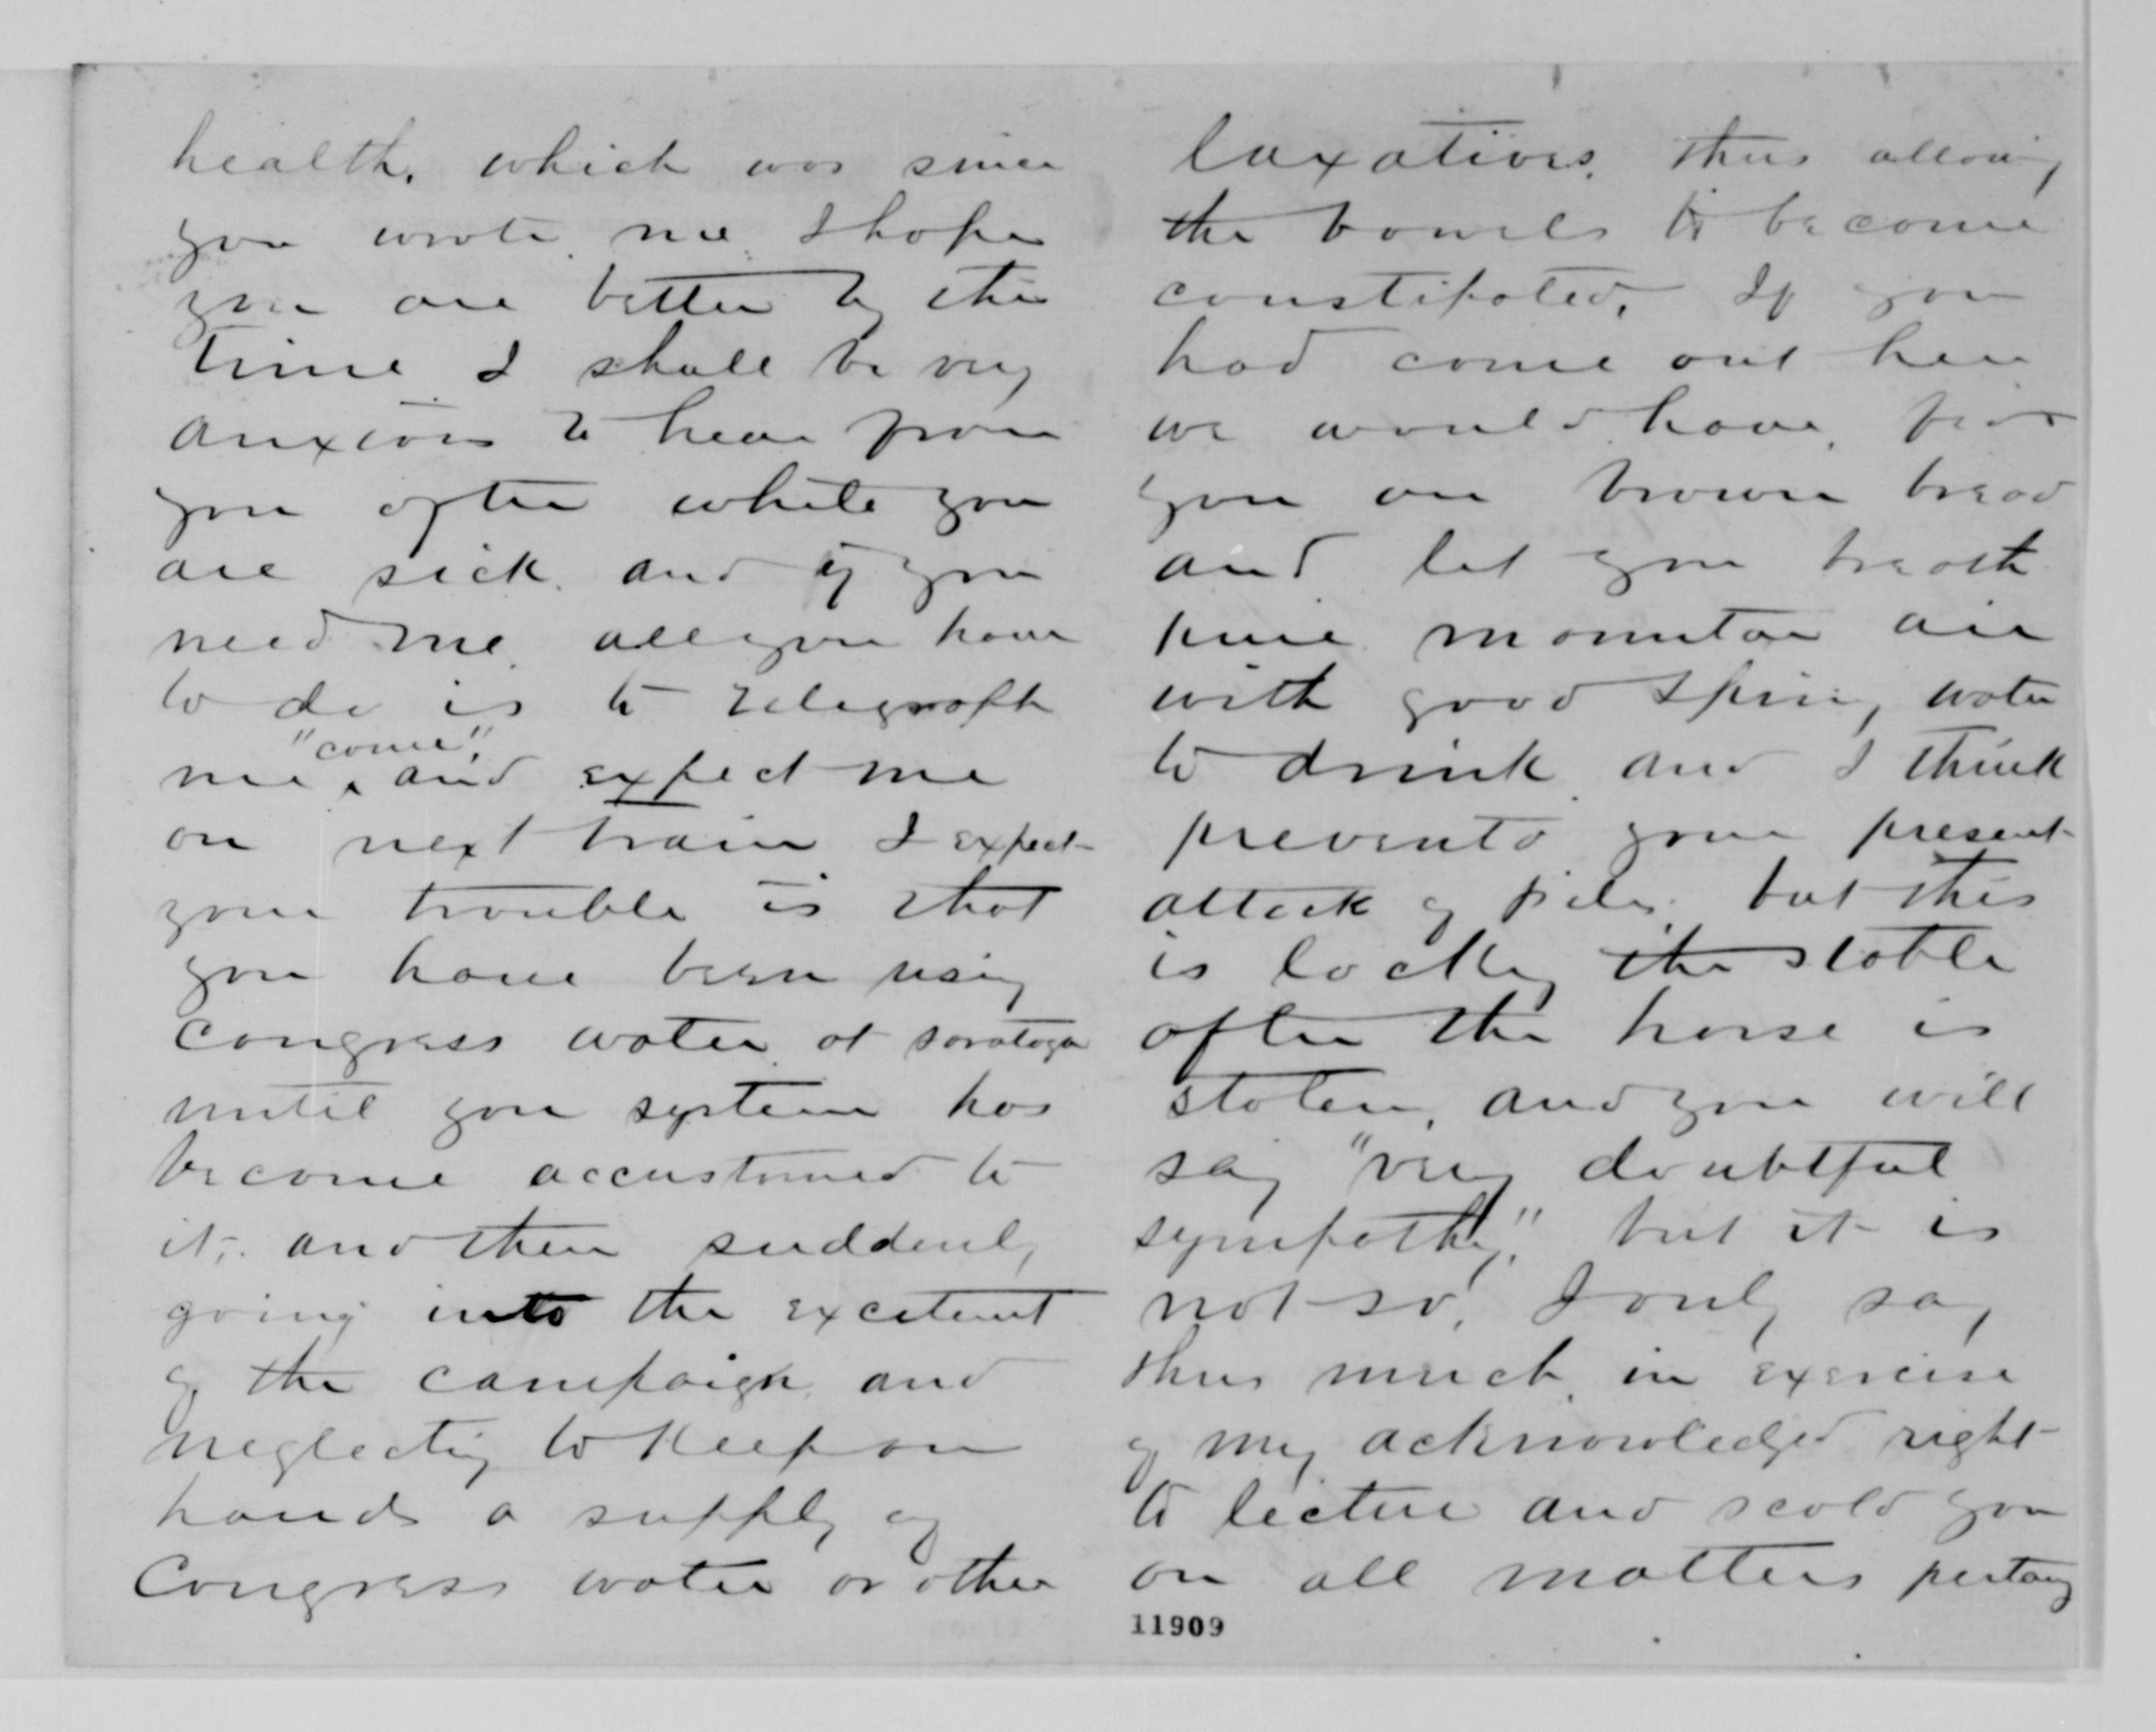 health, which was since
you wrote me I hope
you are better by this
time I shall be very
anxious to hear from
you often while you
are sick. and if you
need me, all you have
to do is to telegraph
"come",
me, and expect me
on next train I expect
your trouble is that
you have been using
congress water at saratoga
until you system has
become accustomed to
it, and then suddenly
going into the excitement
of the campaign, and
neglecting to keep on
hands a supply of
Congress water or other
laxatives, thus allowing
the bowels to become
constipated, If you
had come out here
we would have fed
you on brown bread
and let you breath
pure mountain air
with good Spring water
to drink and I think
prevented your present
attack of piles. but this
is locking the stable
after the horse is
stolen, and you will
say "very doubtful
sympathy," but it is
not so, I only say
thus much in exercise
of my acknowledged right
to lecture and scold you
on all matters pertaing
11909